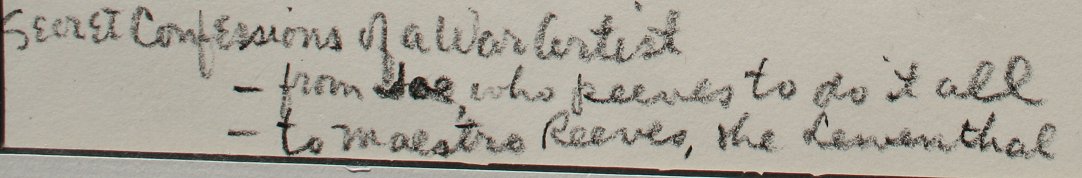 Secret Confessions of a War Artist
- from Joe, who peeves to do it all
- to Maestro Reeves, the Lewenthal